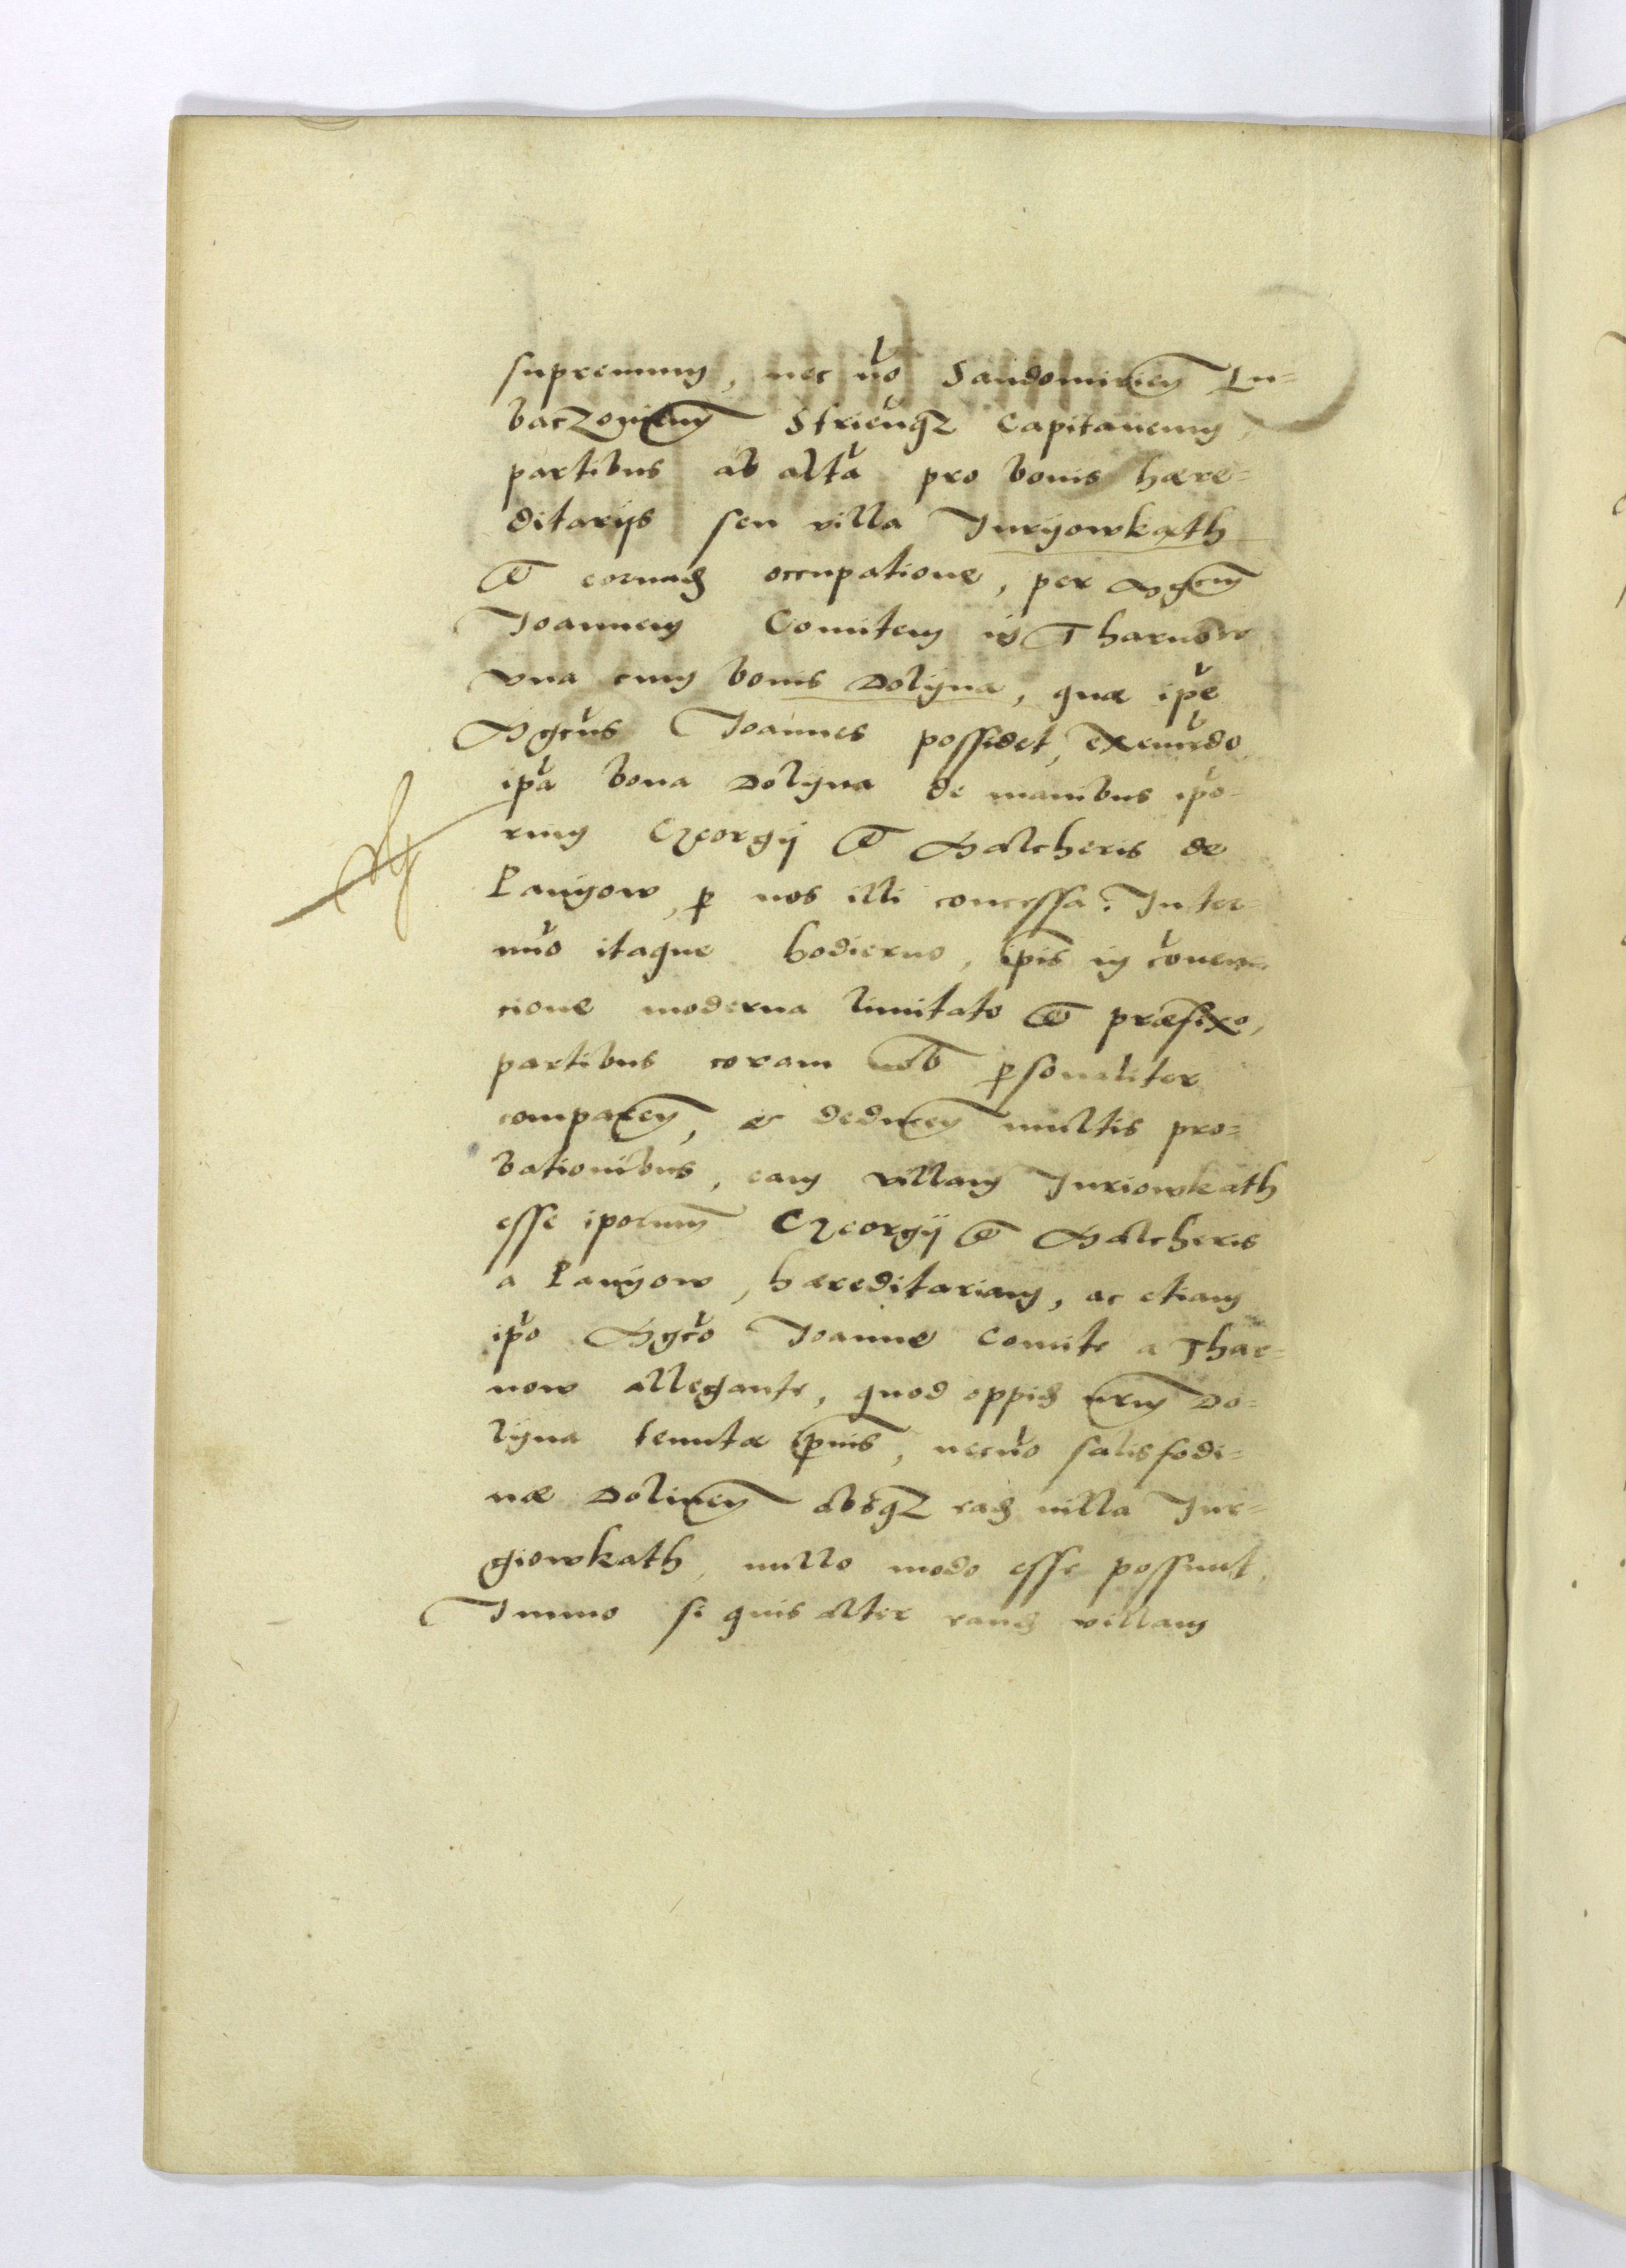 supremum, nec nō Sandomirien̄ Lu=
baczovien̄ Strien̄qz Capitaneum,
partibus ab altā pro bonis hære=
ditarijs seu villa Juryowkath
et eorund occupatione, per Mgcūm
Joannem Comitem in Tharnow
una cum bonis Dolyna, quæ ipē
Mgcūs Joannes possidet, eximēdo
ipā bona Dolyna de manibus ipō=
rum Georgij et Malcheris de
Panyow, ꝑ nos illi concessa. In ter=
mīo itaque hodierno, ipīs in cōven=
cione moderna limitato et præfixo,
partibus coram nob̄ ꝑsonaliter
comparen̄, et deducen̄ multis pro=
bationibus, eam villam Juriowkath
esse ipōrum Georgij et Malcheris
a Panyow, hæreditariam, ac etiam
ipō Mgcō Joanne Comite a Thar=
now allegante, quod oppid nrūm Do=
lyna tenutæ ip̄ius, necnō salisfodi=
næ Dolinen̄ absqz ead villa Jur=
giowkath, nullo modo esse possunt,
Immo si quis alter eand villam